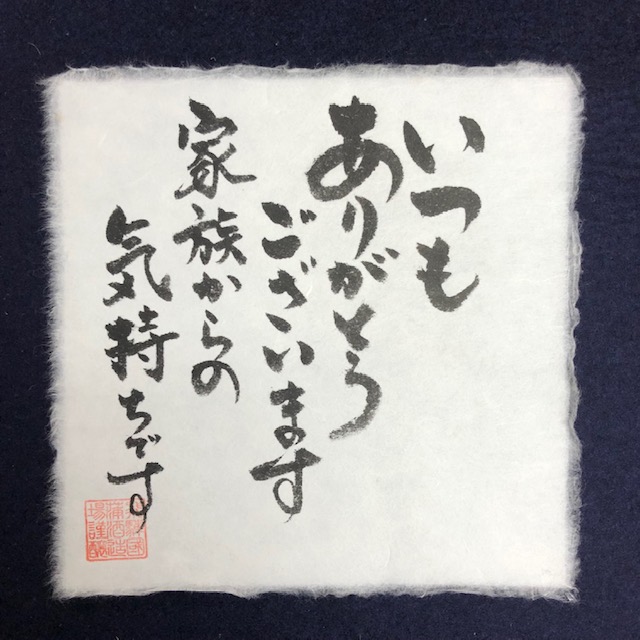 いつも
ありがとう
ございます
家族からの
気持ちです